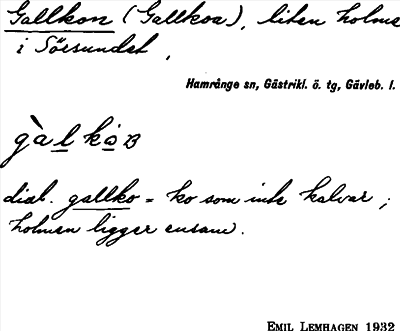 Gallkon (Gallkoa), liten holme
i Sörsundet,
Hamrånge sn, Gästrikl. ö. tg, Gävleb. l.
gàlkoɜ
dial. gallko = ko som inte kalvar;
holmen ligger ensam.
EMIL LEMHAGEN 1932